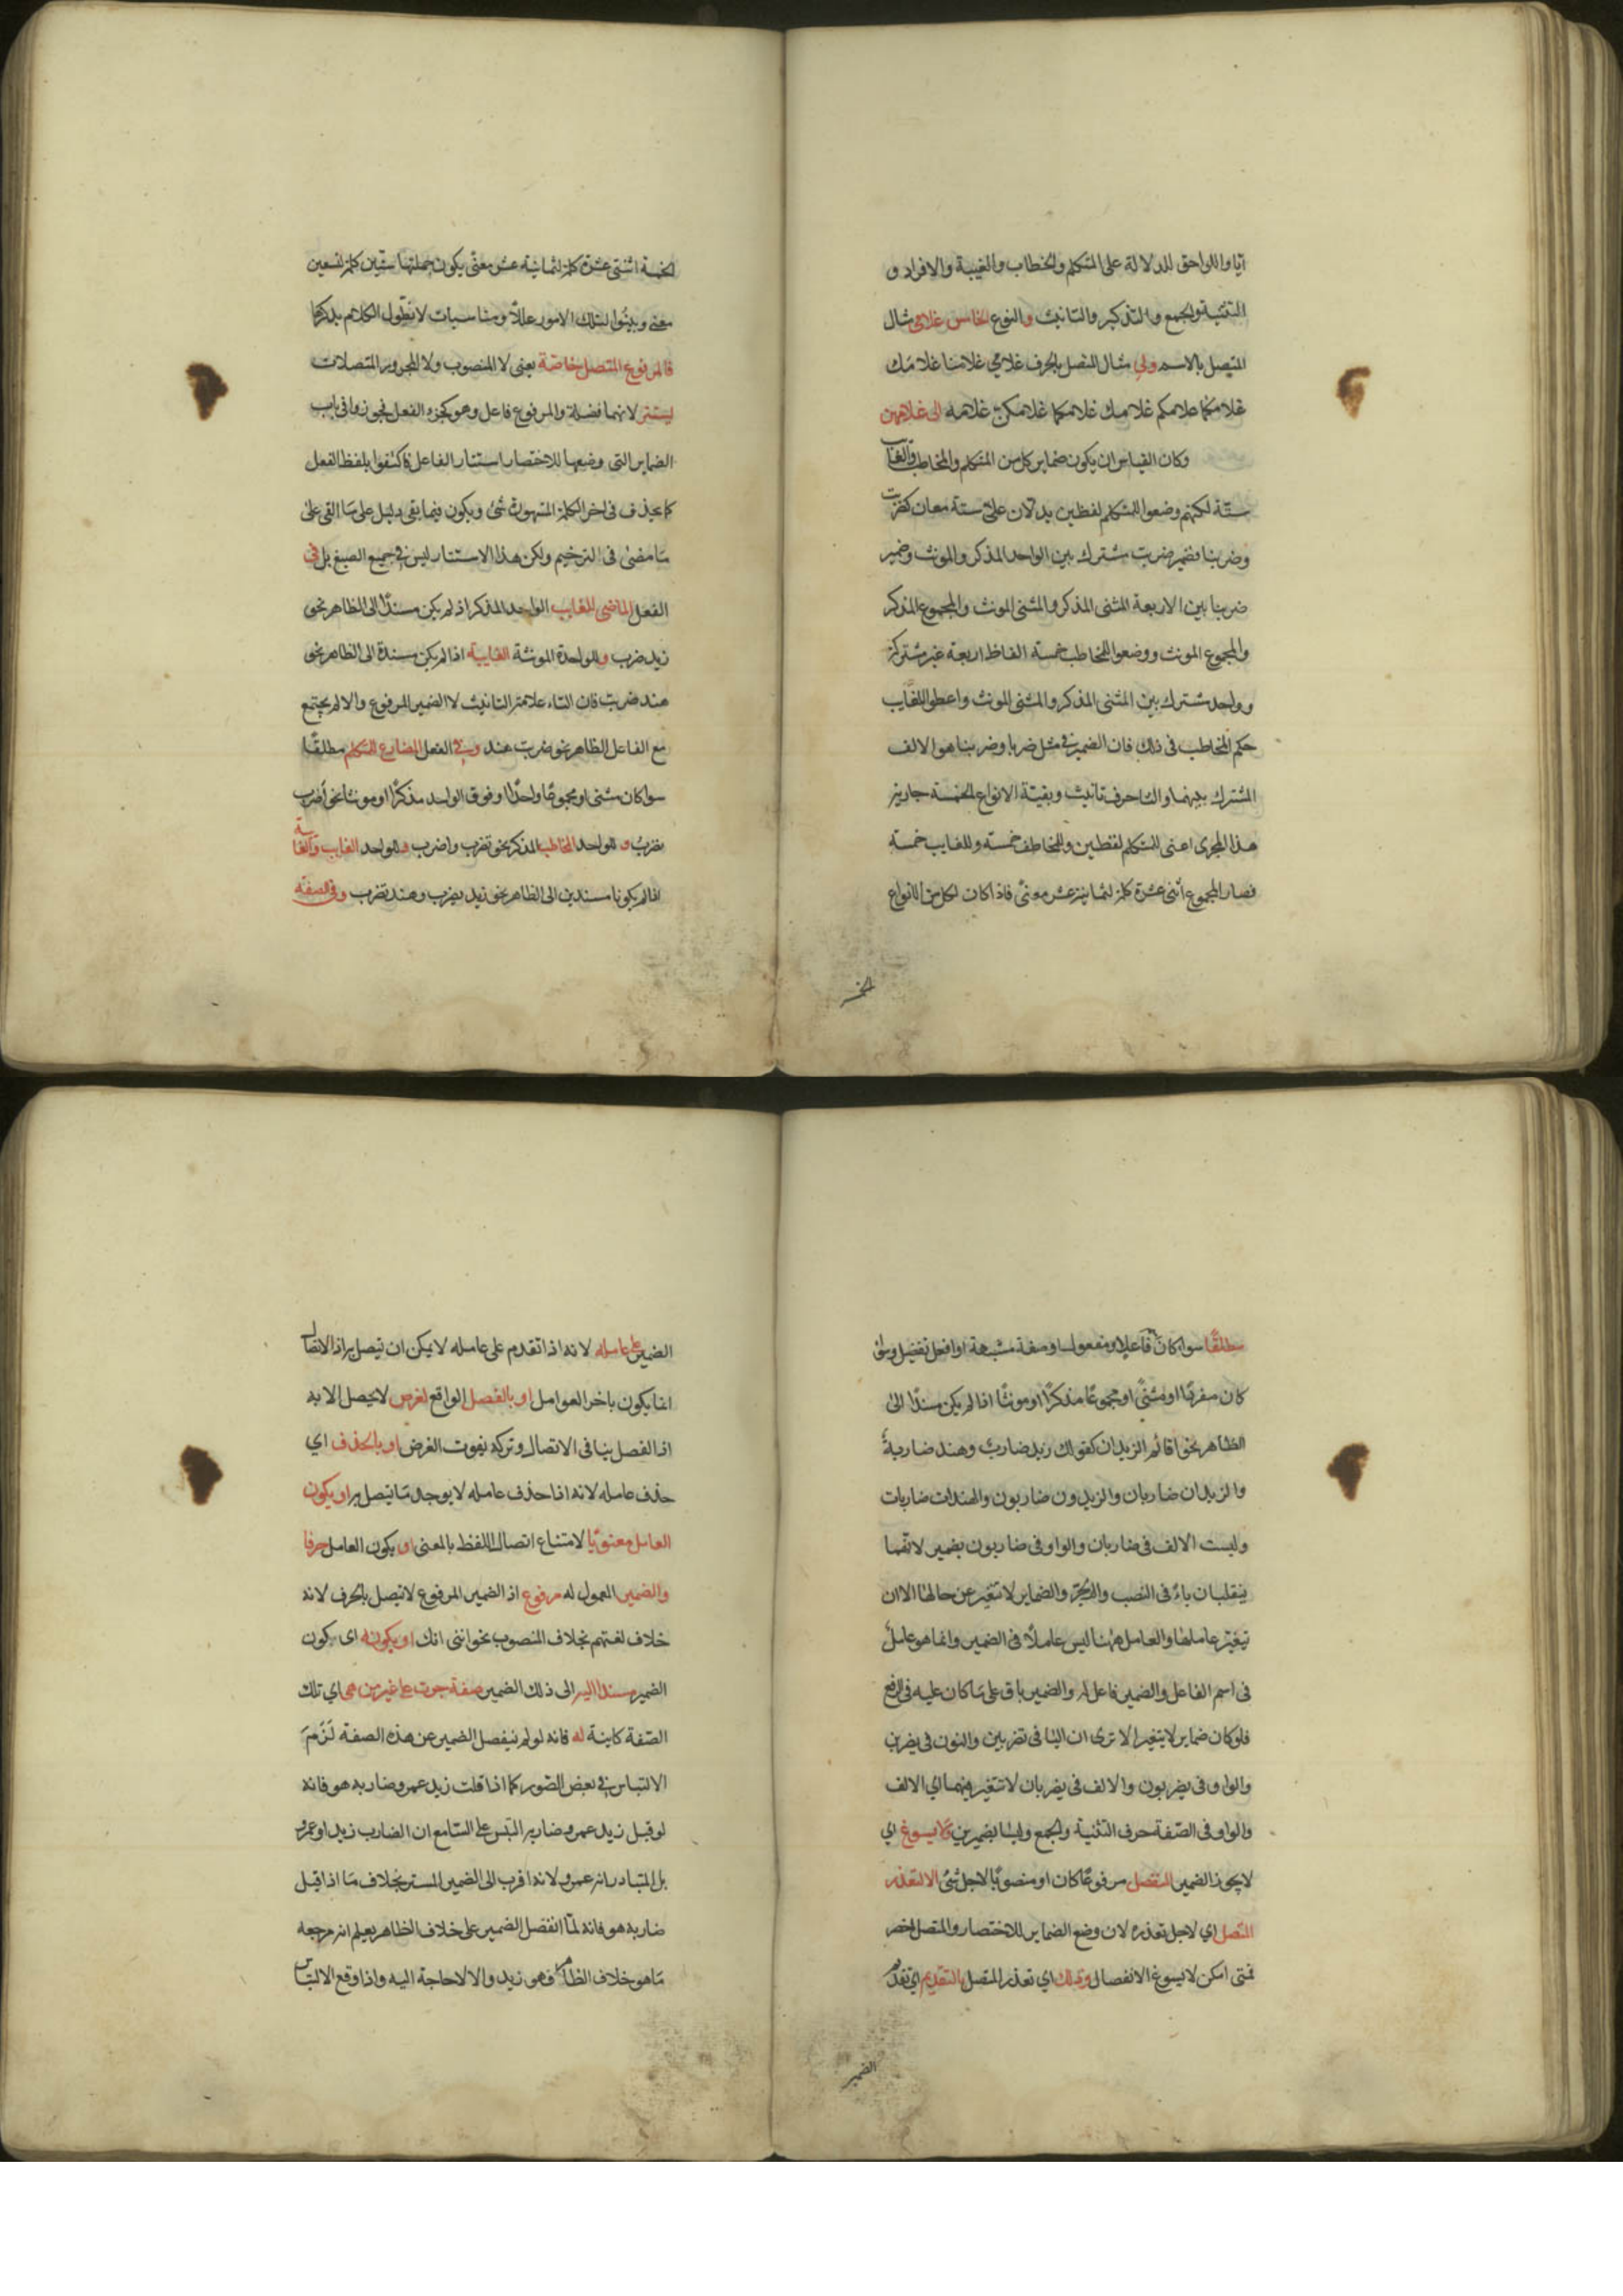 ايا واللواحق للدلالة على المتكلم والخطاب والغيبة والافراد و
التثنية والجمع والتذكير والتانيث والنوع الخامس غلامي مثال
المتصل بالاسم ولي مثال المتصل بالحرف غلامي غلامنا غلامك
غلامكما غلامكم غلامك غلامكما غلامكن غلامه الى غلامهن
وكان القياس ان يكون ضماير كل من المتكلم والمخاطب والغايب
ستة لكنهم وضعوا للمتكلم لفظين يدلان على ستة معان كضربت
وضربنا فضمير ضربت مشترك بين الواحد المذكر والمونث وضمير
ضربنا بين الاربعة المثنى المذكر والمثنى المونث والمجموع المذكر
والمجموع المونث ووضعوا للمخاطب خمسة الفاظ اربعة غير مشتركة
وواحد مشترك بين المثنى المذكر والمثنى المونث واعطوا للغايب
حكم المخاطب في ذلك فان الضمير في مثل ضربا وضربتا هو الالف
المشترك بينهما والتا حرف تانيث وبقية الانواع الخمسة جارية
هذا المجرى اعنى للمتكلم لفظين وللمخاطب خمسة وللغايب خمسة
فصار المجموع اثنى عشرة كلمة لثمانية عشر معنى فاذا كان لكل من الانواع
الخمسة اثنتى عشرة كلمة لثمانية عشر معنى يكون جملتها ستين كلمة لتسعين
معنى وبينوا لتلك الامور عللا ومناسبات لا نطول الكلام بذكرها
فالمرفوع المتصل خاصة يعنى لا المنصوب ولا المجرور المتصلان
يستتر لانهما فضلة والمرفوع فاعل وهو كجزء الفعل فجوزوا في باب
الضماير التى وضعها للاختصار استتار الفاعل فاكتفوا بلفظ الفعل
كما يحذف في اخر الكلمة المشهورة شئ ويكون فيما بقى دليل على ما القى على
ما مضى في الترخيم ولكن هذا الاستتار ليس في جميع الصيغ بل في
الفعل الماضى للغايب الواحد المذكر اذا لم يكن مسندا الى الظاهر نحو
زيد ضرب وللواحدة المونثة الغايبة اذا لم يكن مسندة الى الظاهر نحو
هند ضربت فان التاء علامة التانيث لا الضمير المرفوع والا لم يجتمع
مع الفاعل الظاهر نحو ضربت هند وفي الفعل المضارع للمتكلم مطلقا
سوا كان مثنى او مجموعا واحدا او فوق الواحد مذكرا او مونثا نحو اضرب
نضرب وللواحد المخاطب المذكر نحو تضرب واضرب وللواحد الغايب والغايبة
اذا لم يكونا مسندين الى الظاهر نحو زيد يضرب وهند تضرب وفي الصفة
الخمسة
مطلقا سوا كان فاعلا او مفعولا او صفة مشبهة او افعل تفضيل وسوا
كان مفردا او مثنى او مجموعا مذكرا او مونثا اذا لم يكن مسندا الى
الظاهر نحو اقائم الزيدان كقولك زيد ضارب وهند ضاربة
والزيدان ضاربان والزيدون ضاربون والهندات ضاربات
وليست الالف في ضاربان والواو في ضاربون بضمير لانهما
ينقلبان ياء في النصب والجر والضماير لا تتغير عن حالها الا ان
تيغير عاملها والعامل ههنا ليس عاملا في الضمير وانما هو عامل
في اسم الفاعل والضمير فاعل له والضمير باق على ما كان عليه في الرفع
فلو كان ضماير لا يتغير الا ترى ان اليا في تضربين والنون في يضربن
والواو في يضربون والالف في يضربان لا تتغير فهما اي الالف
والواو في الصفة حرف التثنية والجمع وليسا بضميرين ولا يسوغ اي
لا يجوز الضمير المنفصل مرفوعا كان او منصوبا لاجل شئ الا لتعذر
المتصل اي لاجل تعذره لان وضع الضماير للاختصار والمتصل اخصر
فمتى امكن لا يسوغ الانفصال وذلك اي تعذر المتصل بالتقديم اي تقدم
الضمير على عامله لانه اذا تقدم على عامله لا يمكن ان يتصل به اذ الاتصال
انما يكون باخر العوامل او بالفصل الواقع لغرض لا يحصل الا به
اذ الفصل ينافي الاتصال وتركه يفوت الغرض او بالحذف اي
حذف عامله لانه اذا حذف عامله لا يوجد ما يتصل به او يكون
العامل معنويا لامتناع اتصال اللفظ بالمعنى او يكون العامل حرفا
والضمير المعمول له مرفوع اذ الضمير المرفوع لا يتصل بالحرف لانه
خلاف لغتهم بخلاف المنصوب نحو انني انك او بكونه اى كون
الضمير مسندا اليه الى ذلك الضمير صفة جرت على غير من هى اي تلك
الصفة كاينة له فانه لو لم ينفصل الضمير عن هذه الصفة لزم
الالتباس في بعض الصور كما اذا قلت زيد عمرو ضاربه هو فانه
لو قيل زيد عمرو ضاربه التبس على السامع ان الضارب زيد او عمرو
بل المتبادر انه عمرو لانه اقرب الى الضمير المستتر بخلاف ما اذا قيل
ضاربه هو فانه لما انفصل الضمير على خلاف الظاهر يعلم ان مرجعه
ما هو خلاف الظاهر فهو زيد والا لا حاجة اليه واذا وقع الالتباس
الضمير